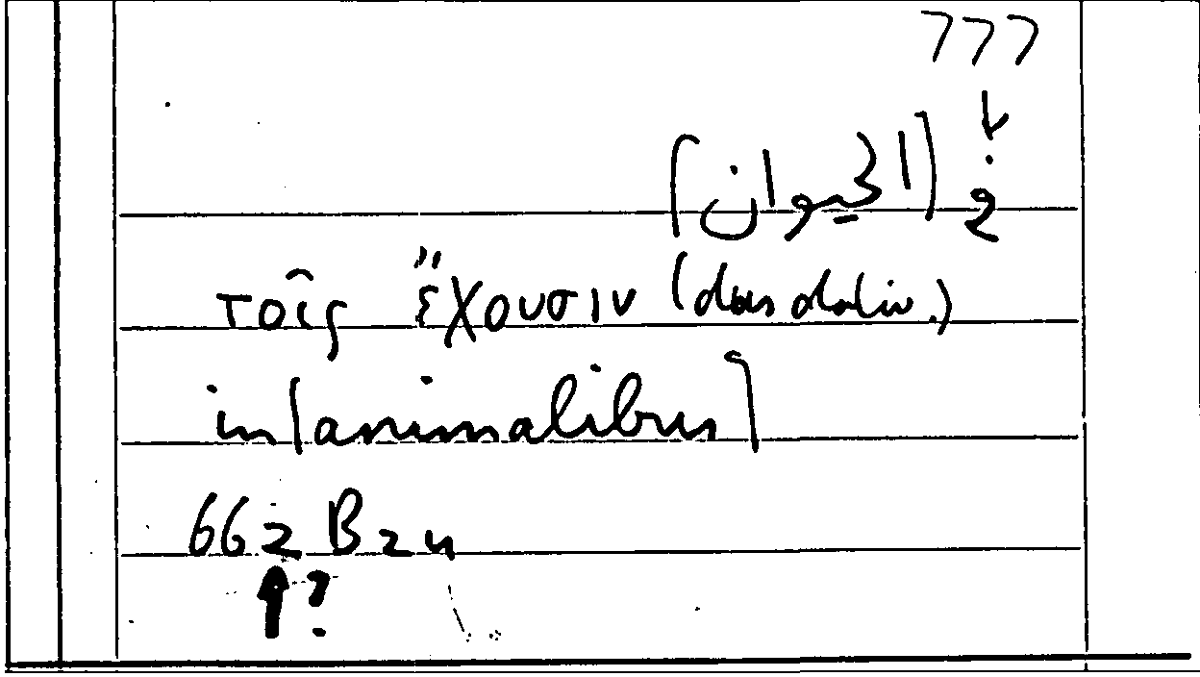 777
↓
في [الحيوان]
τοῖς ἔχουσιν (das dativ.)
in [animalibus]
662 B 24
↑ ?